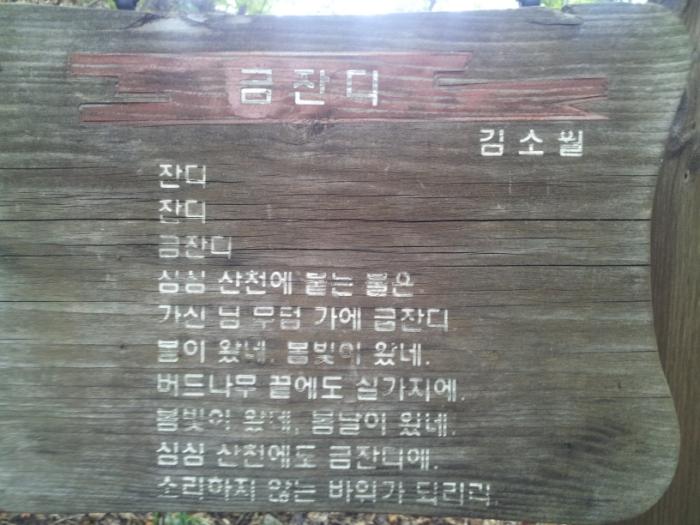 금잔디
김소월
잔디
잔디
금잔디
심심 산천에 붙는 불은
가신 님 무덤 가에 금잔디
봄이 왔네. 봄빛이 왔네.
버드나무 끝에도 실가지에.
봄빛이 왔네. 봄날이 왔네.
심심 산천에도 금잔디에.
소리하지 않는 바위가 되리라.